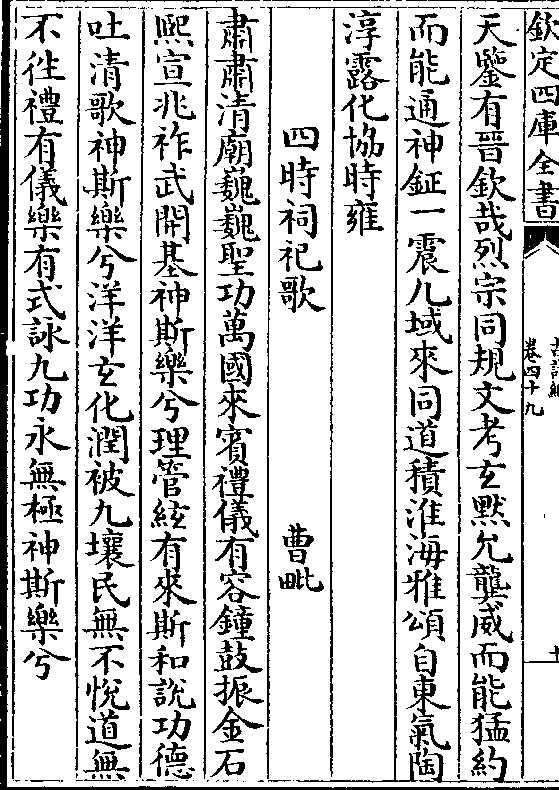 欽定四庫全書
卷四十九
天鑒有晉欽哉烈宗同規文考玄默允龔威而能猛約
而能通神鉦一震九域來同道積淮海雅頌自東氣陶
淳露化協時雍
四時祠祀歌 曹毗
肅肅清廟巍巍聖功萬國來賓禮儀有容鐘鼓振金石
熙宣兆祚武開基神斯樂兮理管絃有來斯和說功德
吐清歌神斯樂兮洋洋玄化潤被九壤民無不悅道無
不徃禮有儀樂有式詠九功永無極神斯樂兮